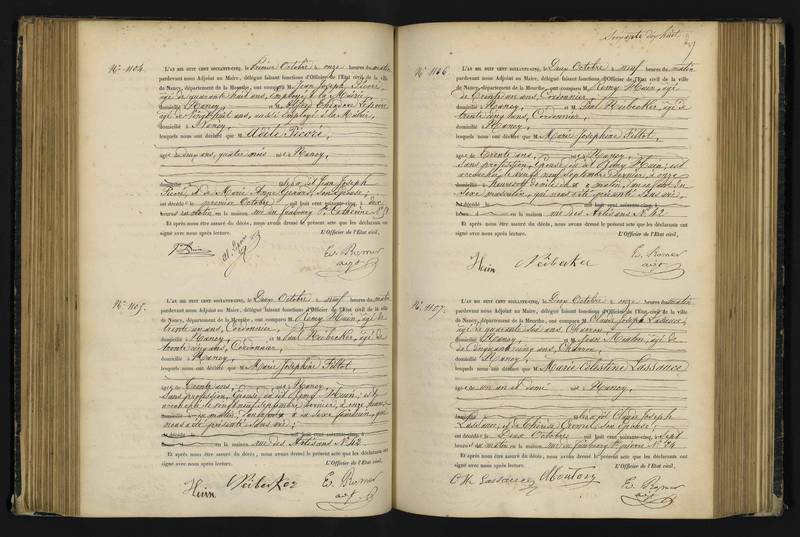 N° 1104. L'AN MIL HUIT CENT SOIXANTE-CINQ, le Premier Octobre à onze heures du matin
pardevant nous Adjoint au Maire, délégué faisant fonctions d'Officier de l'Etat civil de la ville
de Nancy, département de la Meurthe, ont comparu M. Jean Joseph Picoré,
âgé de quarante huit ans, Employé à la Mairie,
domicilié à Nancy, et M. Alfred Théodore
âgé de vingt huit ans, aussi Employé à la Mairie,
domicilié à Nancy,
lesquels nous ont déclaré que M Adèle Picoré,
âgée de deux ans, quatre mois née à Nancy,
domiciliée fille de Jean Joseph
Picoré, et de Marie Anne Gérard, son épouse;
est décédée le premier Octobre mil huit cent soixante-cinq, à deux
heures du matin, en la maison rue du faubourg Ste Catherine N°
Et après nous être assuré du décès, nous avons dressé le présent acte que les déclarants ont
signé avec nous après lecture. L'Officier de l'Etat civil,
Ev. Romer
adjt
N° 1105. L'AN MIL HUIT CENT SOIXANTE-CINQ, le Deux Octobre à neuf heures du matin
pardevant nous Adjoint au Maire, délégué faisant fonctions d'Officier de l'Etat civil de la ville
de Nancy, département de la Meurthe, ont comparu M. Remy Huin, âgé de
trente un ans, Cordonnier,
domicilié à Nancy, et M. Paul Neibecker, âgé de
trente cinq ans, Cordonnier,
domicilié à Nancy,
lesquels nous ont déclaré que M Marie Joséphine Fillot,
âgée de trente ans, née à Nancy,
sans profession, Epouse du dit Remy Huin; est
accouchée le vingt neuf Septembre dernier, à onze heures
du matin, d'un enfant du sexe féminin, qui
nous a été présenté sans vie;
est décédé le mil huit cent soixante-cinq, à
en la maison rue des Artisans N° 42.
Et après nous être assuré du décès, nous avons dressé le présent acte que les déclarants ont
signé avec nous après lecture. L'Officier de l'Etat civil,
Huin Neibecker Ev. Romer
adjt
Soixante dix huit
N° 1106. L'AN MIL HUIT CENT SOIXANTE-CINQ, le Deux Octobre à neuf heures du matin
pardevant nous Adjoint au Maire, délégué faisant fonctions d'Officier de l'Etat civil de la ville
de Nancy, département de la Meurthe, ont comparu M. Remy Huin, âgé
de trente un ans, Cordonnier,
domicilié à Nancy, et M. Paul Neibecker, âgé de
trente cinq ans, Cordonnier,
domicilié à Nancy,
lesquels nous ont déclaré que M Marie Joséphine Fillot,
âgée de trente ans, née à Nancy,
sans profession, Epouse du dit Remy Huin; est
accouchée le vingt neuf Septembre dernier, à onze
heures du matin, d'un enfant du
sexe masculin, qui nous a été présenté sans vie,
est décédé le mil huit cent soixante-cinq, à
heures en la maison rue des Artisans N° 42
Et après nous être assuré du décès, nous avons dressé le présent acte que les déclarants ont
signé avec nous après lecture. L'Officier de l'Etat civil,
Huin Neibecker Ev. Romer
adjt
N° 1107. L'AN MIL HUIT CENT SOIXANTE-CINQ, le Deux Octobre à onze heures du matin
pardevant nous Adjoint au Maire, délégué faisant fonctions d'Officier de l'Etat civil de la ville
de Nancy, département de la Meurthe, ont comparu M. Claude Joseph Lassauce,
âgé de quarante six ans, Charron,
domicilié à Nancy, et M. Jean Mouton, âgé de
de Cinquante cinq ans, Charron,
domicilié à Nancy,
lesquels nous ont déclaré que M Marie Célestine Lassauce
âgée de un an et demi née à Nancy,
domiciliée fille du dit Claude Joseph
Lassauce, et de Thérèse son épouse;
est décédée le Deux Octobre mil huit cent soixante-cinq, à sept
heures du matin en la maison rue du faubourg St pierre N° 74
Et après nous être assuré du décès, nous avons dressé le présent acte que les déclarants ont
signé avec nous après lecture. L'Officier de l'Etat civil,
Lassauce Mouton Ev. Romer
adjt